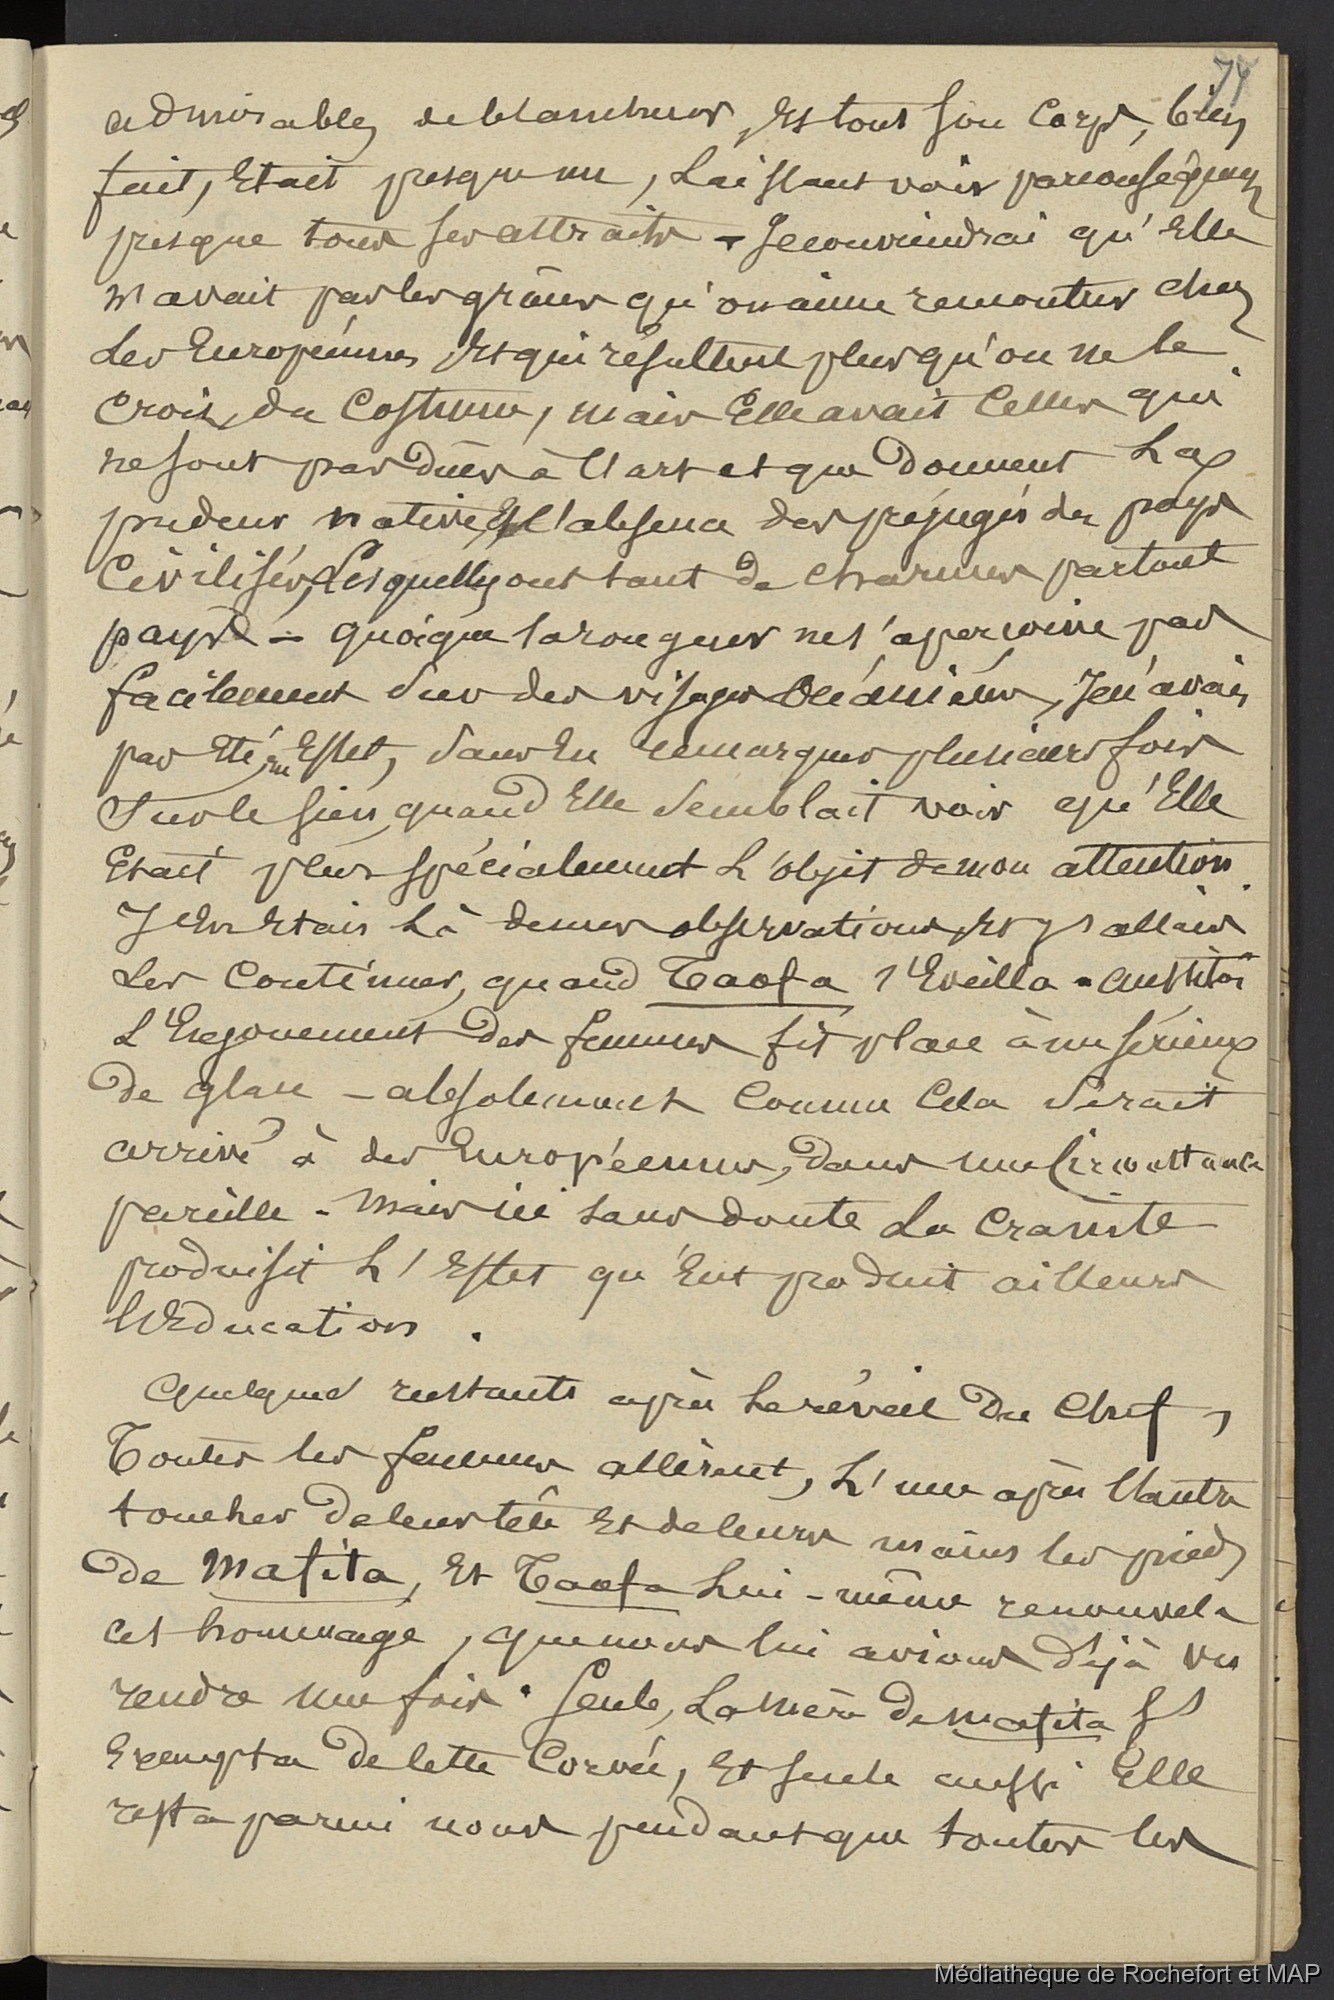 74
admirables de blancheur, Et tout son Corps, bien
fait, Etait presque nu, Laissant voir par conséquent
presque tous ses attraits - Je conviendrai qu'Elle
n'avait pas les grâces qu'on aime rencontrer chez
Les Européennes Et qui résultent plus qu'on ne le
Croit, du Costume, mais Elle avait Celles qui
ne sont pas dûes à l'art et que donnent La
pudeur native Et l'absence des préjugés des pays
Civilisés, Lesquelles ont tant de charmes partout
pays - quoique la rougeur ne s'aperçoive pas
facilement sur des visages Océaniens, Je n'avais
pas Eté, en Effet, sans En remarquer plusieurs fois
Sur le sien, quand Elle semblait voir qu'Elle
Etait plus spécialement L'objet de mon attention.
J'En Etais Là de mes observations, Et J'allais
Les Continuer, quand Taofa s'Eveilla - aussitôt
L'Enjouement des femmes fit place à un sérieux
de glace - absolument Comme Cela serait
arrivé à des Européennes, dans une Circonstance
pareille - Mais ici sans doute La Crainte
produisit L'Effet qu'Eut produit ailleurs
L'Education.
Quelques instants après Le réveil du Chef,
Toutes les femmes allèrent, L'une après l'autre
toucher de leur tête Et de leurs mains les pieds
de Mafita, Et Taofa Lui-même renouvela
cet hommage, que nous lui avions déjà vu
rendre une fois. Seule, La Mère de Mafita s'
Exempta de Cette Corvée, Et seule aussi Elle
resta parmi nous pendant que toutes les
Médiathèque de Rochefort et MAP